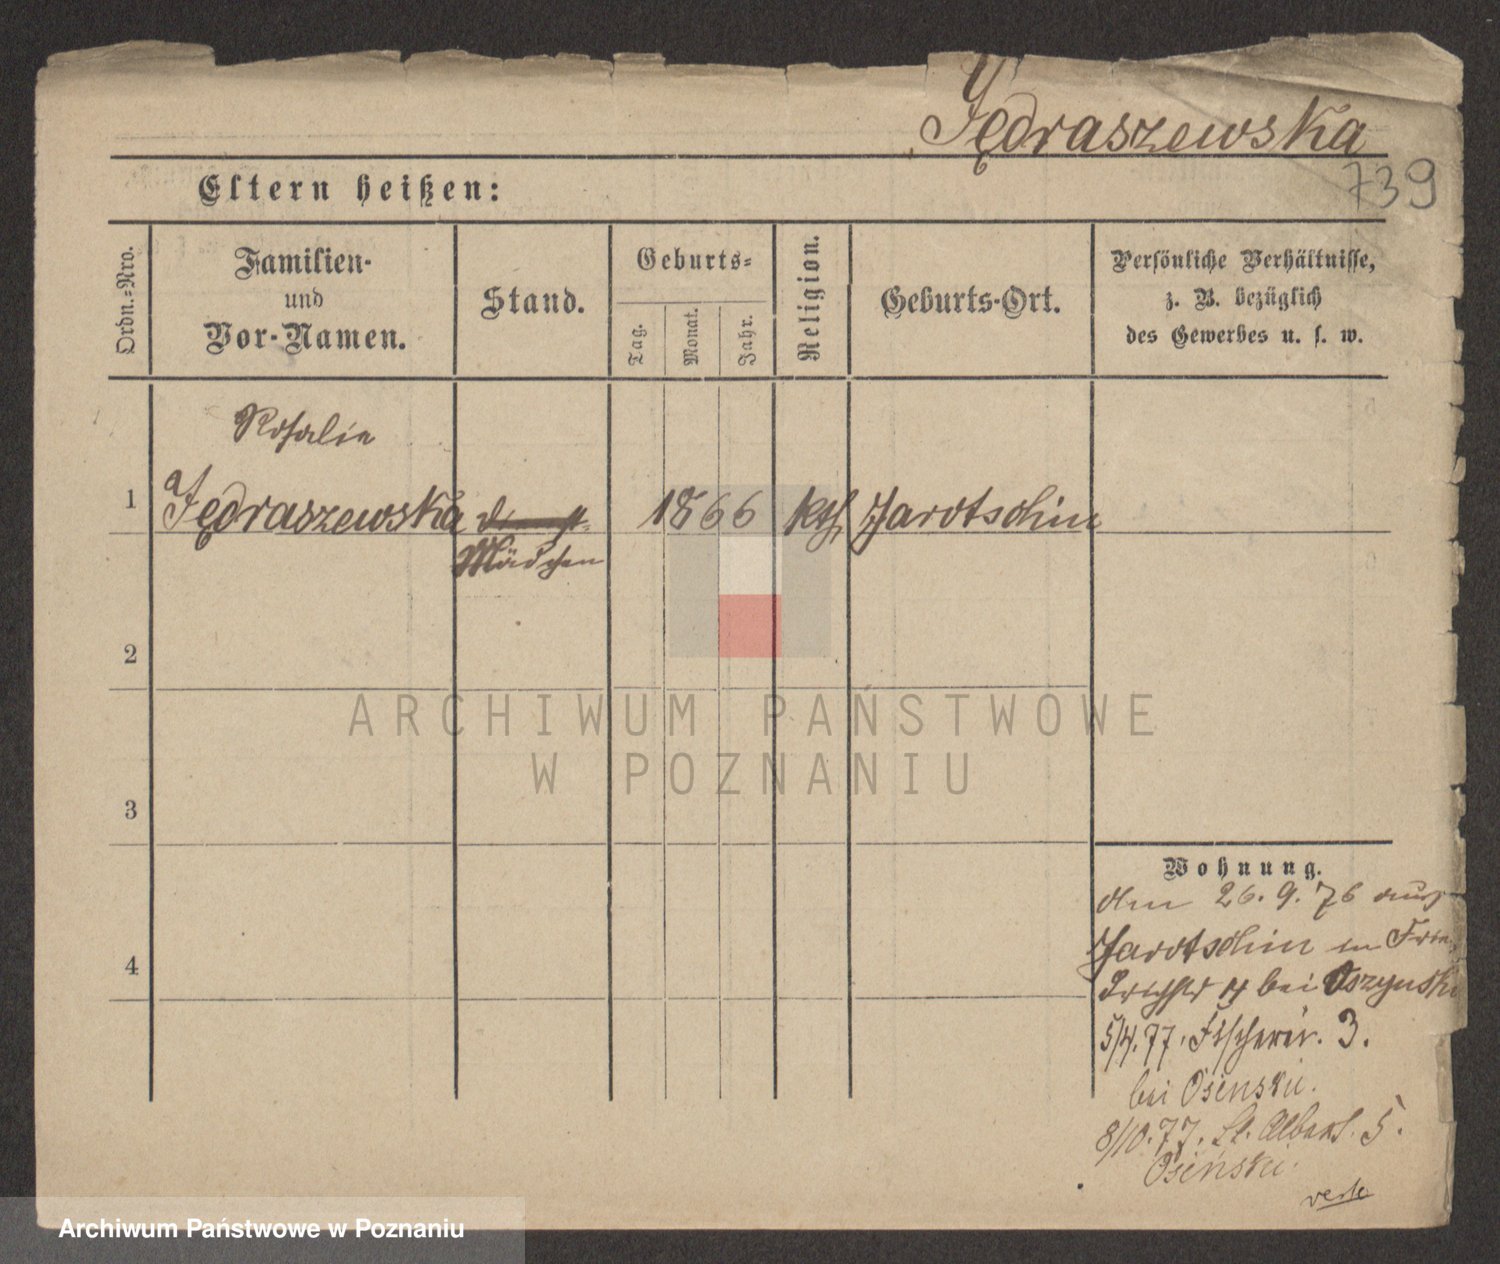 Jędraszewska
739
Eltern heißen:
Ordn.-Nro.
Familien-
und
Vor-Namen.
Stand.
Geburts-
Tag.
Monat.
Jahr.
Religion.
Geburts-Ort.
Persönliche Verhältnisse,
z. B. bezüglich
des Gewerbes u. s. w.
Rosalie
1 Jędraszewska 1866 kth Jarotschin
Mädchen
2
3
4
ARCHIWUM PAŃSTWOWE
W POZNANIU
Wohnung.
den 26. 9. 76 aus
Jarotschin in
bei Oszynski
5/4. 77. Fischerei. 3.
bei Osinski.
8/10. 77. St. Adalbert. 5.
Osinski.
verte
Archiwum Państwowe w Poznaniu